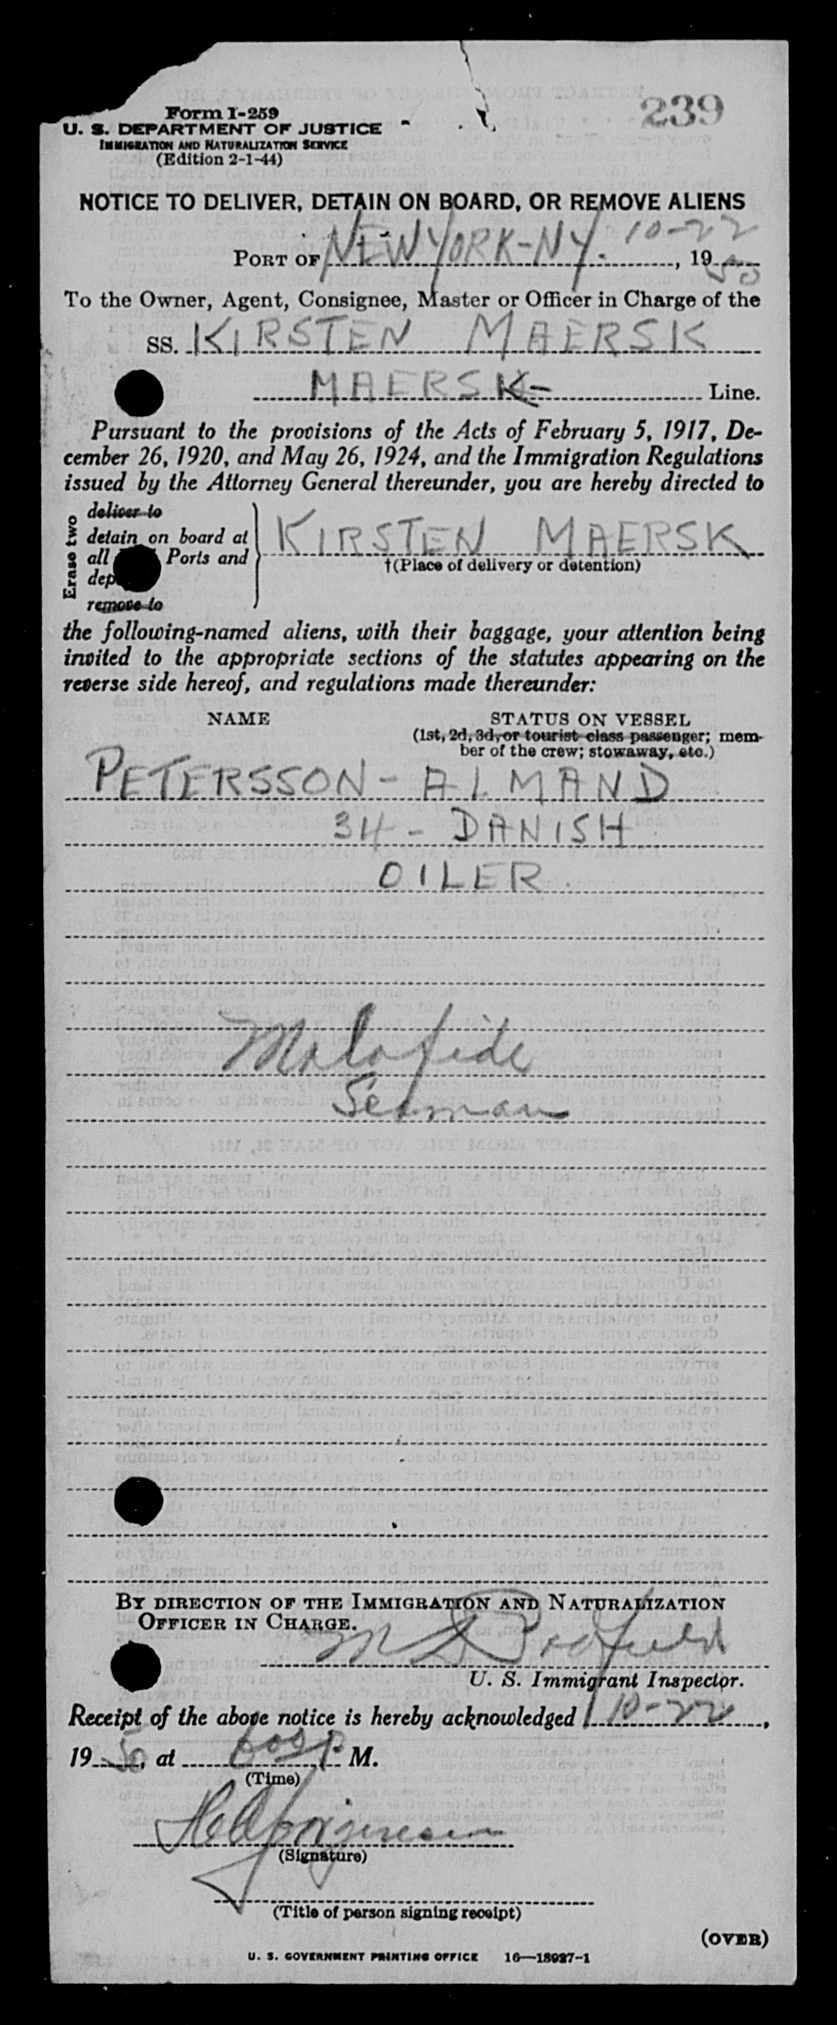 239
Form I-259
U. S. DEPARTMENT OF JUSTICE
IMMIGRATION AND NATURALIZATION SERVICE
(Edition 2-1-44)
NOTICE TO DELIVER, DETAIN ON BOARD, OR REMOVE ALIENS
PORT OF NEW YORK-NY. 10-22, 1950
To the Owner, Agent, Consignee, Master or Officer in Charge of the
SS. KIRSTEN MAERSK
MAERSK Line.
Pursuant to the provisions of the Acts of February 5, 1917, De-
cember 26, 1920, and May 26, 1924, and the Immigration Regulations
issued by the Attorney General thereunder, you are hereby directed to
Erase two
deliver to
detain on board at
all Ports and
dep
remove to
KIRSTEN MAERSK
†(Place of delivery or detention)
the following-named aliens, with their baggage, your attention being
invited to the appropriate sections of the statutes appearing on the
reverse side hereof, and regulations made thereunder:
NAME STATUS ON VESSEL
(1st, 2d, 3d, or tourist class passenger; mem-
ber of the crew; stowaway, etc.)
PETERSSON - ALMAND
34 - DANISH
OILER
Malafide
Seaman
BY DIRECTION OF THE IMMIGRATION AND NATURALIZATION
OFFICER IN CHARGE.
U. S. Immigrant Inspector.
Receipt of the above notice is hereby acknowledged 10-22,
1950, at 600 P M.
(Time)
(Signature)
(Title of person signing receipt)
(OVER)
U. S. GOVERNMENT PRINTING OFFICE 16—18927-1